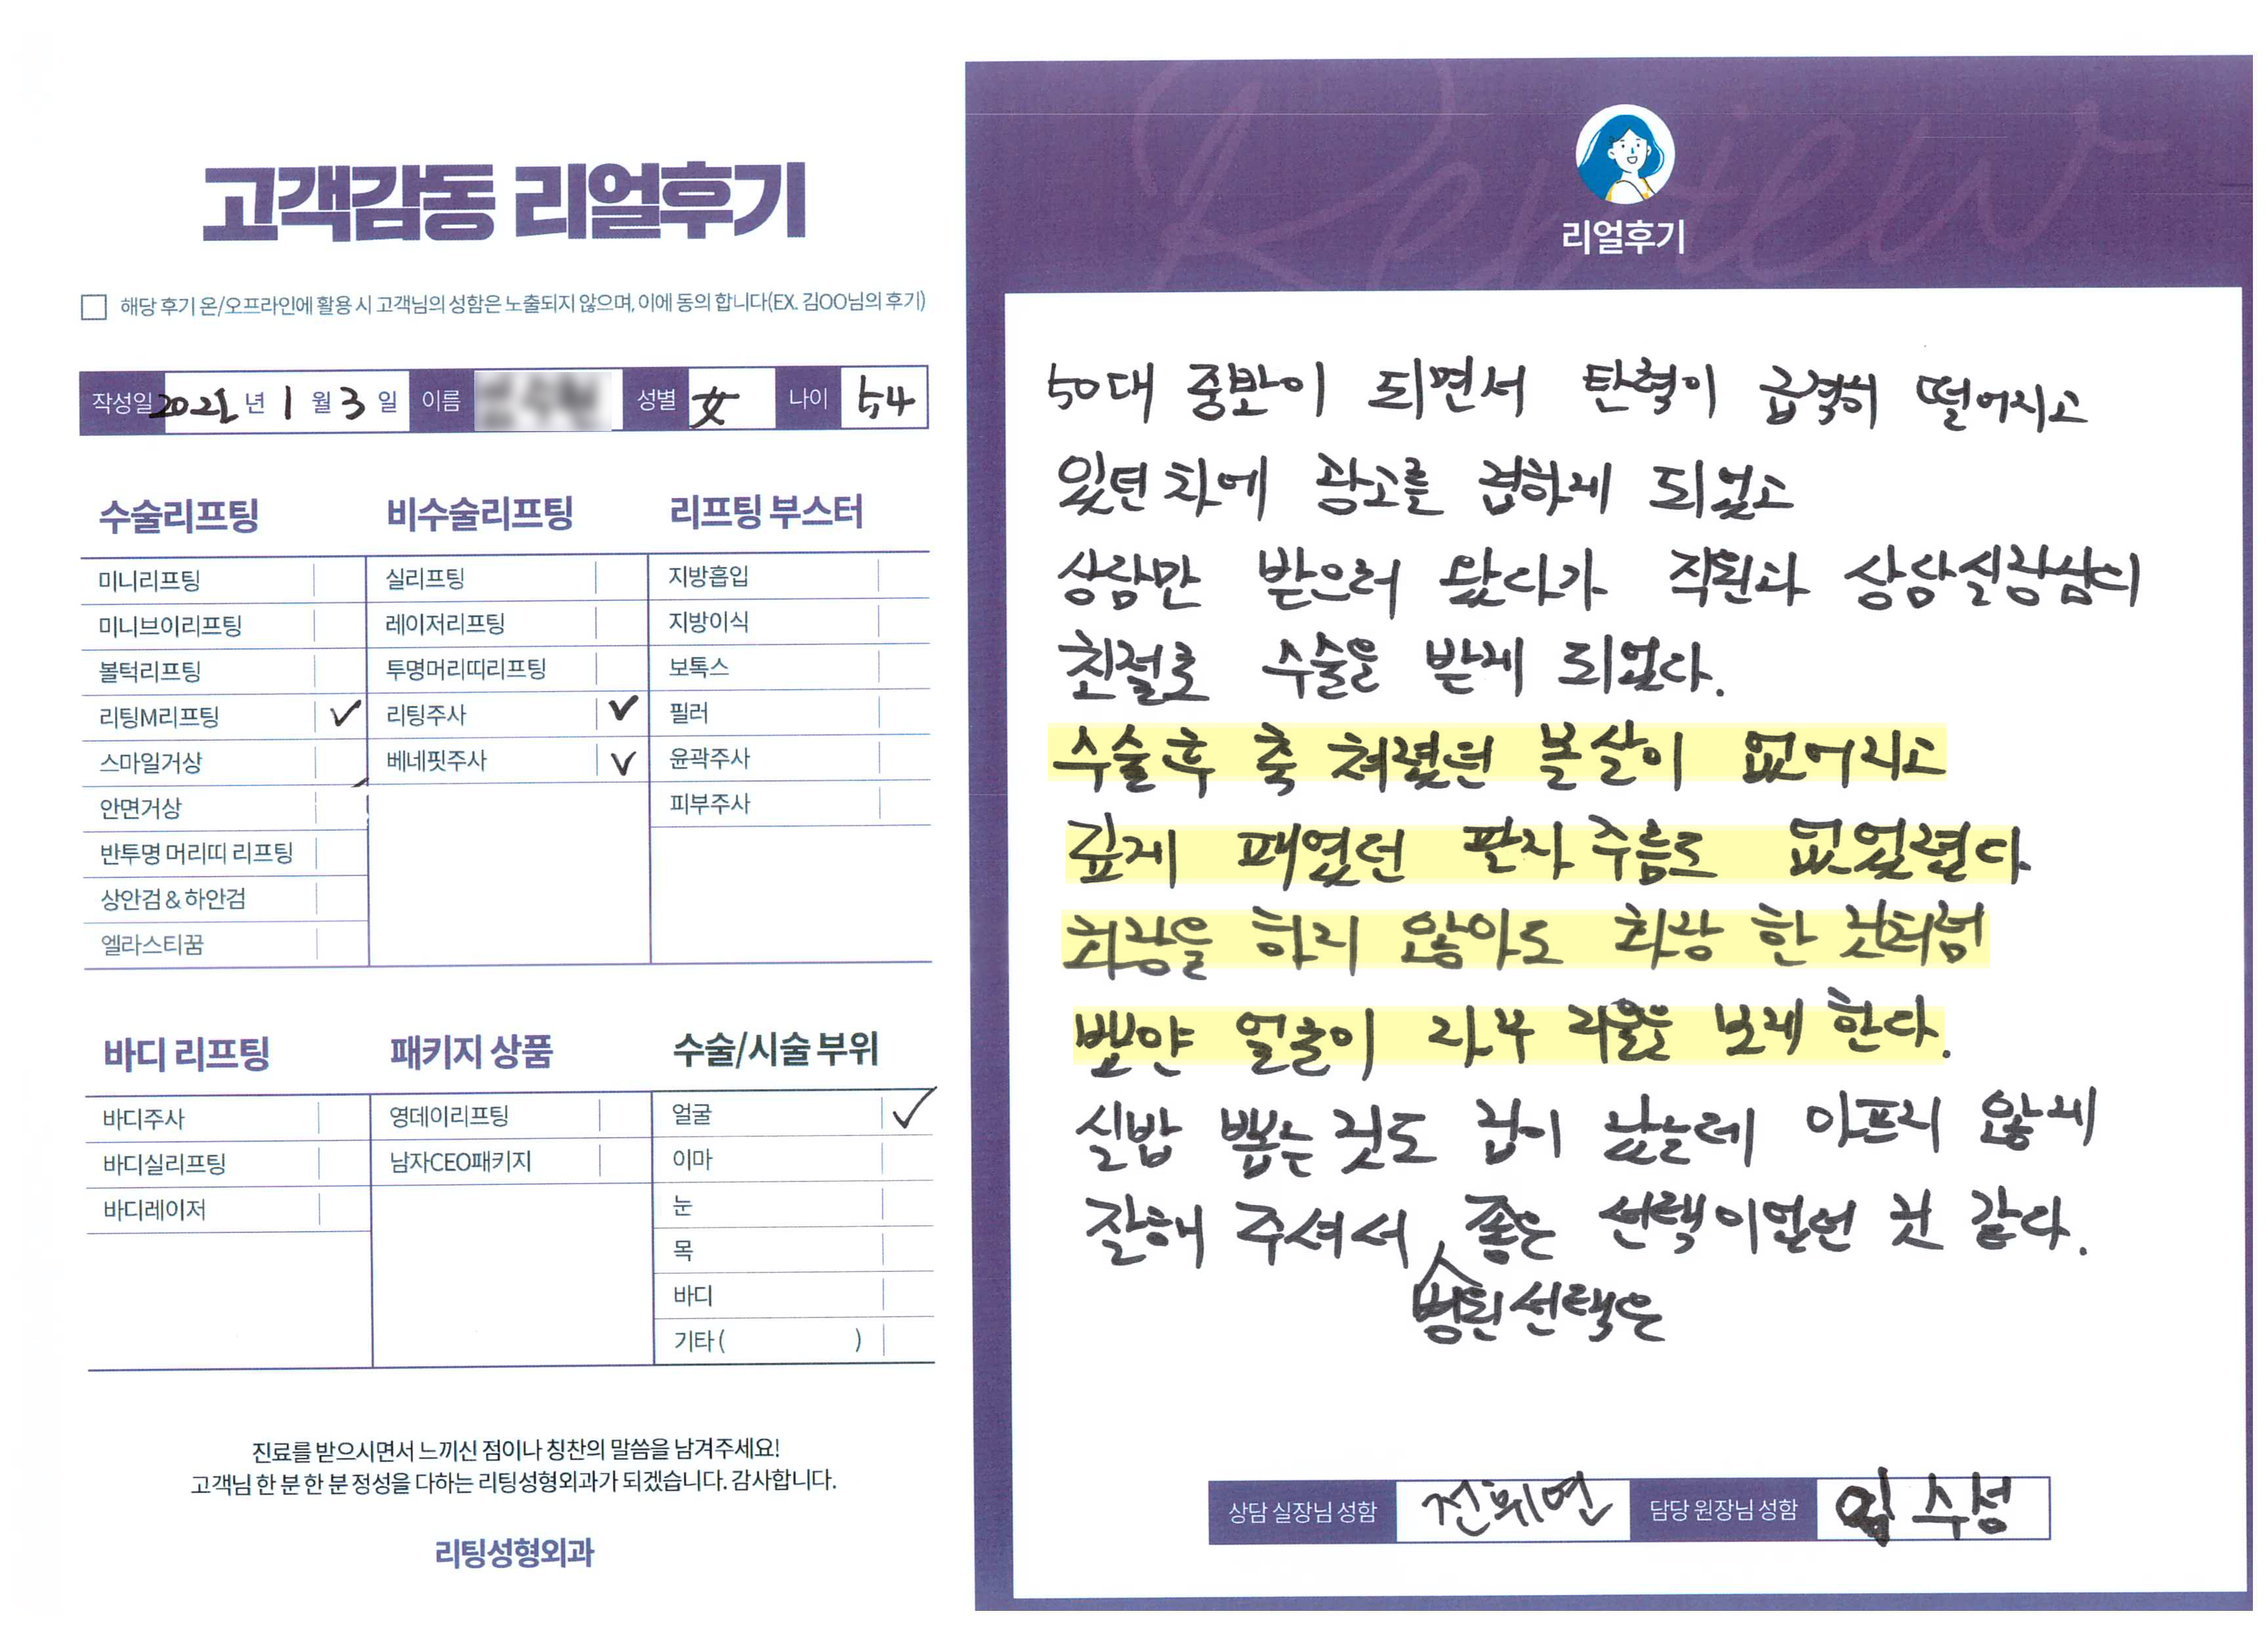 고객감동 리얼후기
해당 후기 온/오프라인에 활용 시 고객님의 성함은 노출되지 않으며, 이에 동의 합니다(EX. 김OO님의 후기)
작성일 2021 년 1 월 3 일 이름 성별 女 나이 54
수술리프팅
미니리프팅
미니브이리프팅
볼턱리프팅
리팅M리프팅 ✓
스마일거상
안면거상
반투명 머리띠 리프팅
상안검 & 하안검
엘라스티꿈
비수술리프팅
실리프팅
레이저리프팅
투명머리띠리프팅
리팅주사 ✓
베네핏주사 ✓
리프팅 부스터
지방흡입
지방이식
보톡스
필러
윤곽주사
피부주사
바디 리프팅
바디주사
바디실리프팅
바디레이저
패키지 상품
영데이리프팅
남자CEO패키지
수술/시술 부위
얼굴 ✓
이마
눈
목
바디
기타 ( )
진료를 받으시면서 느끼신 점이나 칭찬의 말씀을 남겨주세요!
고객님 한 분 한 분 정성을 다하는 리팅성형외과가 되겠습니다. 감사합니다.
리팅성형외과
Review
리얼후기
50대 중반이 되면서 탄력이 급격히 떨어지고
있던 차에 광고를 접하게 되었고
상담만 받으러 왔다가 직원과 상담실장님의
친절로 수술을 받게 되었다.
수술후 축 쳐졌던 볼살이 없어지고
깊게 패였던 팔자 주름도 없어졌다
화장을 하지 않아도 화장 한 것처럼
뽀얀 얼굴이 자꾸 거울을 보게 한다.
실밥 뽑는 것도 겁이 났는데 아프지 않게
잘해 주셔서 좋은 선택이었던 것 같다.
병원선택은
상담 실장님 성함 담당 원장님 성함 임수성